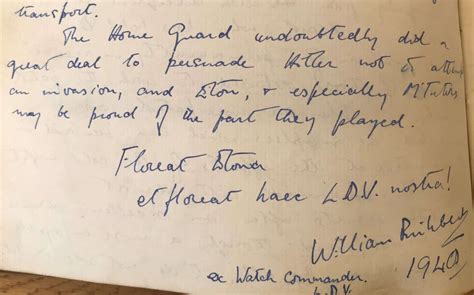 transport.
The Home Guard undoubtedly did a
great deal to persuade Hitler not to attempt
an invasion, and Eton, & especially M'Tutors
may be proud of the part they played.
Floreat Etona
et floreat haec L.D.V. nostra!
William
1940
ex Watch Commander
L.D.V.